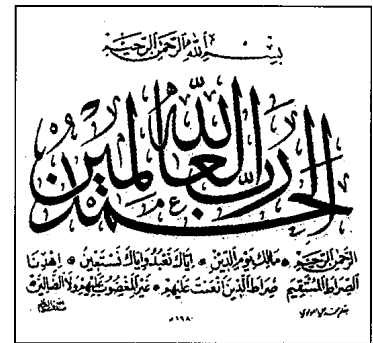 بِسْمِ اللهِ الرَّحْمٰنِ الرَّحِيْمِ
الحمد لله رب العالمين
الرَّحْمٰنِ الرَّحِيْمِ * مَالِكِ يَوْمِ الدِّيْنِ * اِيَّاكَ نَعْبُدُ وَاِيَّاكَ نَسْتَعِيْنُ * اِهْدِنَا
الصِّرَاطَ الْمُسْتَقِيْمَ صِرَاطَ الَّذِيْنَ اَنْعَمْتَ عَلَيْهِمْ * غَيْرِ الْمَغْضُوْبِ عَلَيْهِمْ وَلَا الضَّالِّيْنَ
١٩٨٠م